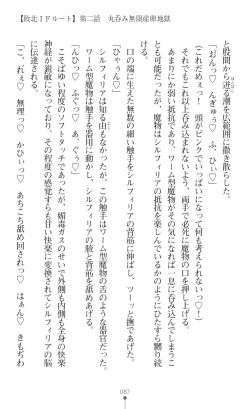 【敗北ＩＦルート】第二話　丸呑み無限産卵地獄
と股間から迸る潮を広範囲に撒き散らした。
「おんっ♡　んぎゅぅ♡　ふ、ひぃ♡」
（これだめぇっ！　頭がピンクでいっぱいになって何も考えられないっ♡！）
それでもこれ以上呑み込まれないよう、両手で必死に魔物の口を押し上げる。
とも可能だったが、魔物はシルフィリアの抵抗を楽しんでいるかのようにひたすら嬲り続
口の端に生えた無数の細い触手をシルフィリアの背筋に伸ばし、ツーっと撫であげた。
「ひゃぅん♡」
シルフィリアは知る由もなかったが、この触手はワーム型魔物の舌のような器官だった。
ワーム型魔物は触手を器用に動かし、シルフィリアの腋と背筋を舐めあげる。
「んひっ♡　ふぐっ♡　あ、ぐぅ♡」
こそばゆい程度のソフトタッチであったが、媚毒ガスのせいで外側も内側も全身の快楽
神経が鋭敏になっており、その程度の感覚すらも甘い快楽に変換されてシルフィリアの脳
に伝達される。
「こ、れぇ♡　無理っ♡　かひぃっ♡　あちこち舐め回されっ♡　はぁん♡　きもぢわ
087